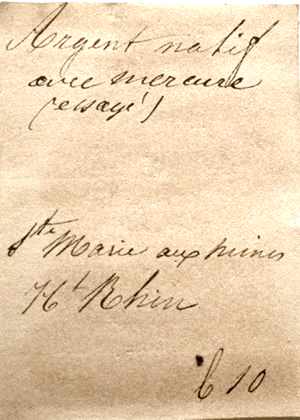 Argent natif
avec mercure
(essayé)
Ste Marie aux mines
Ht Rhin
6 10